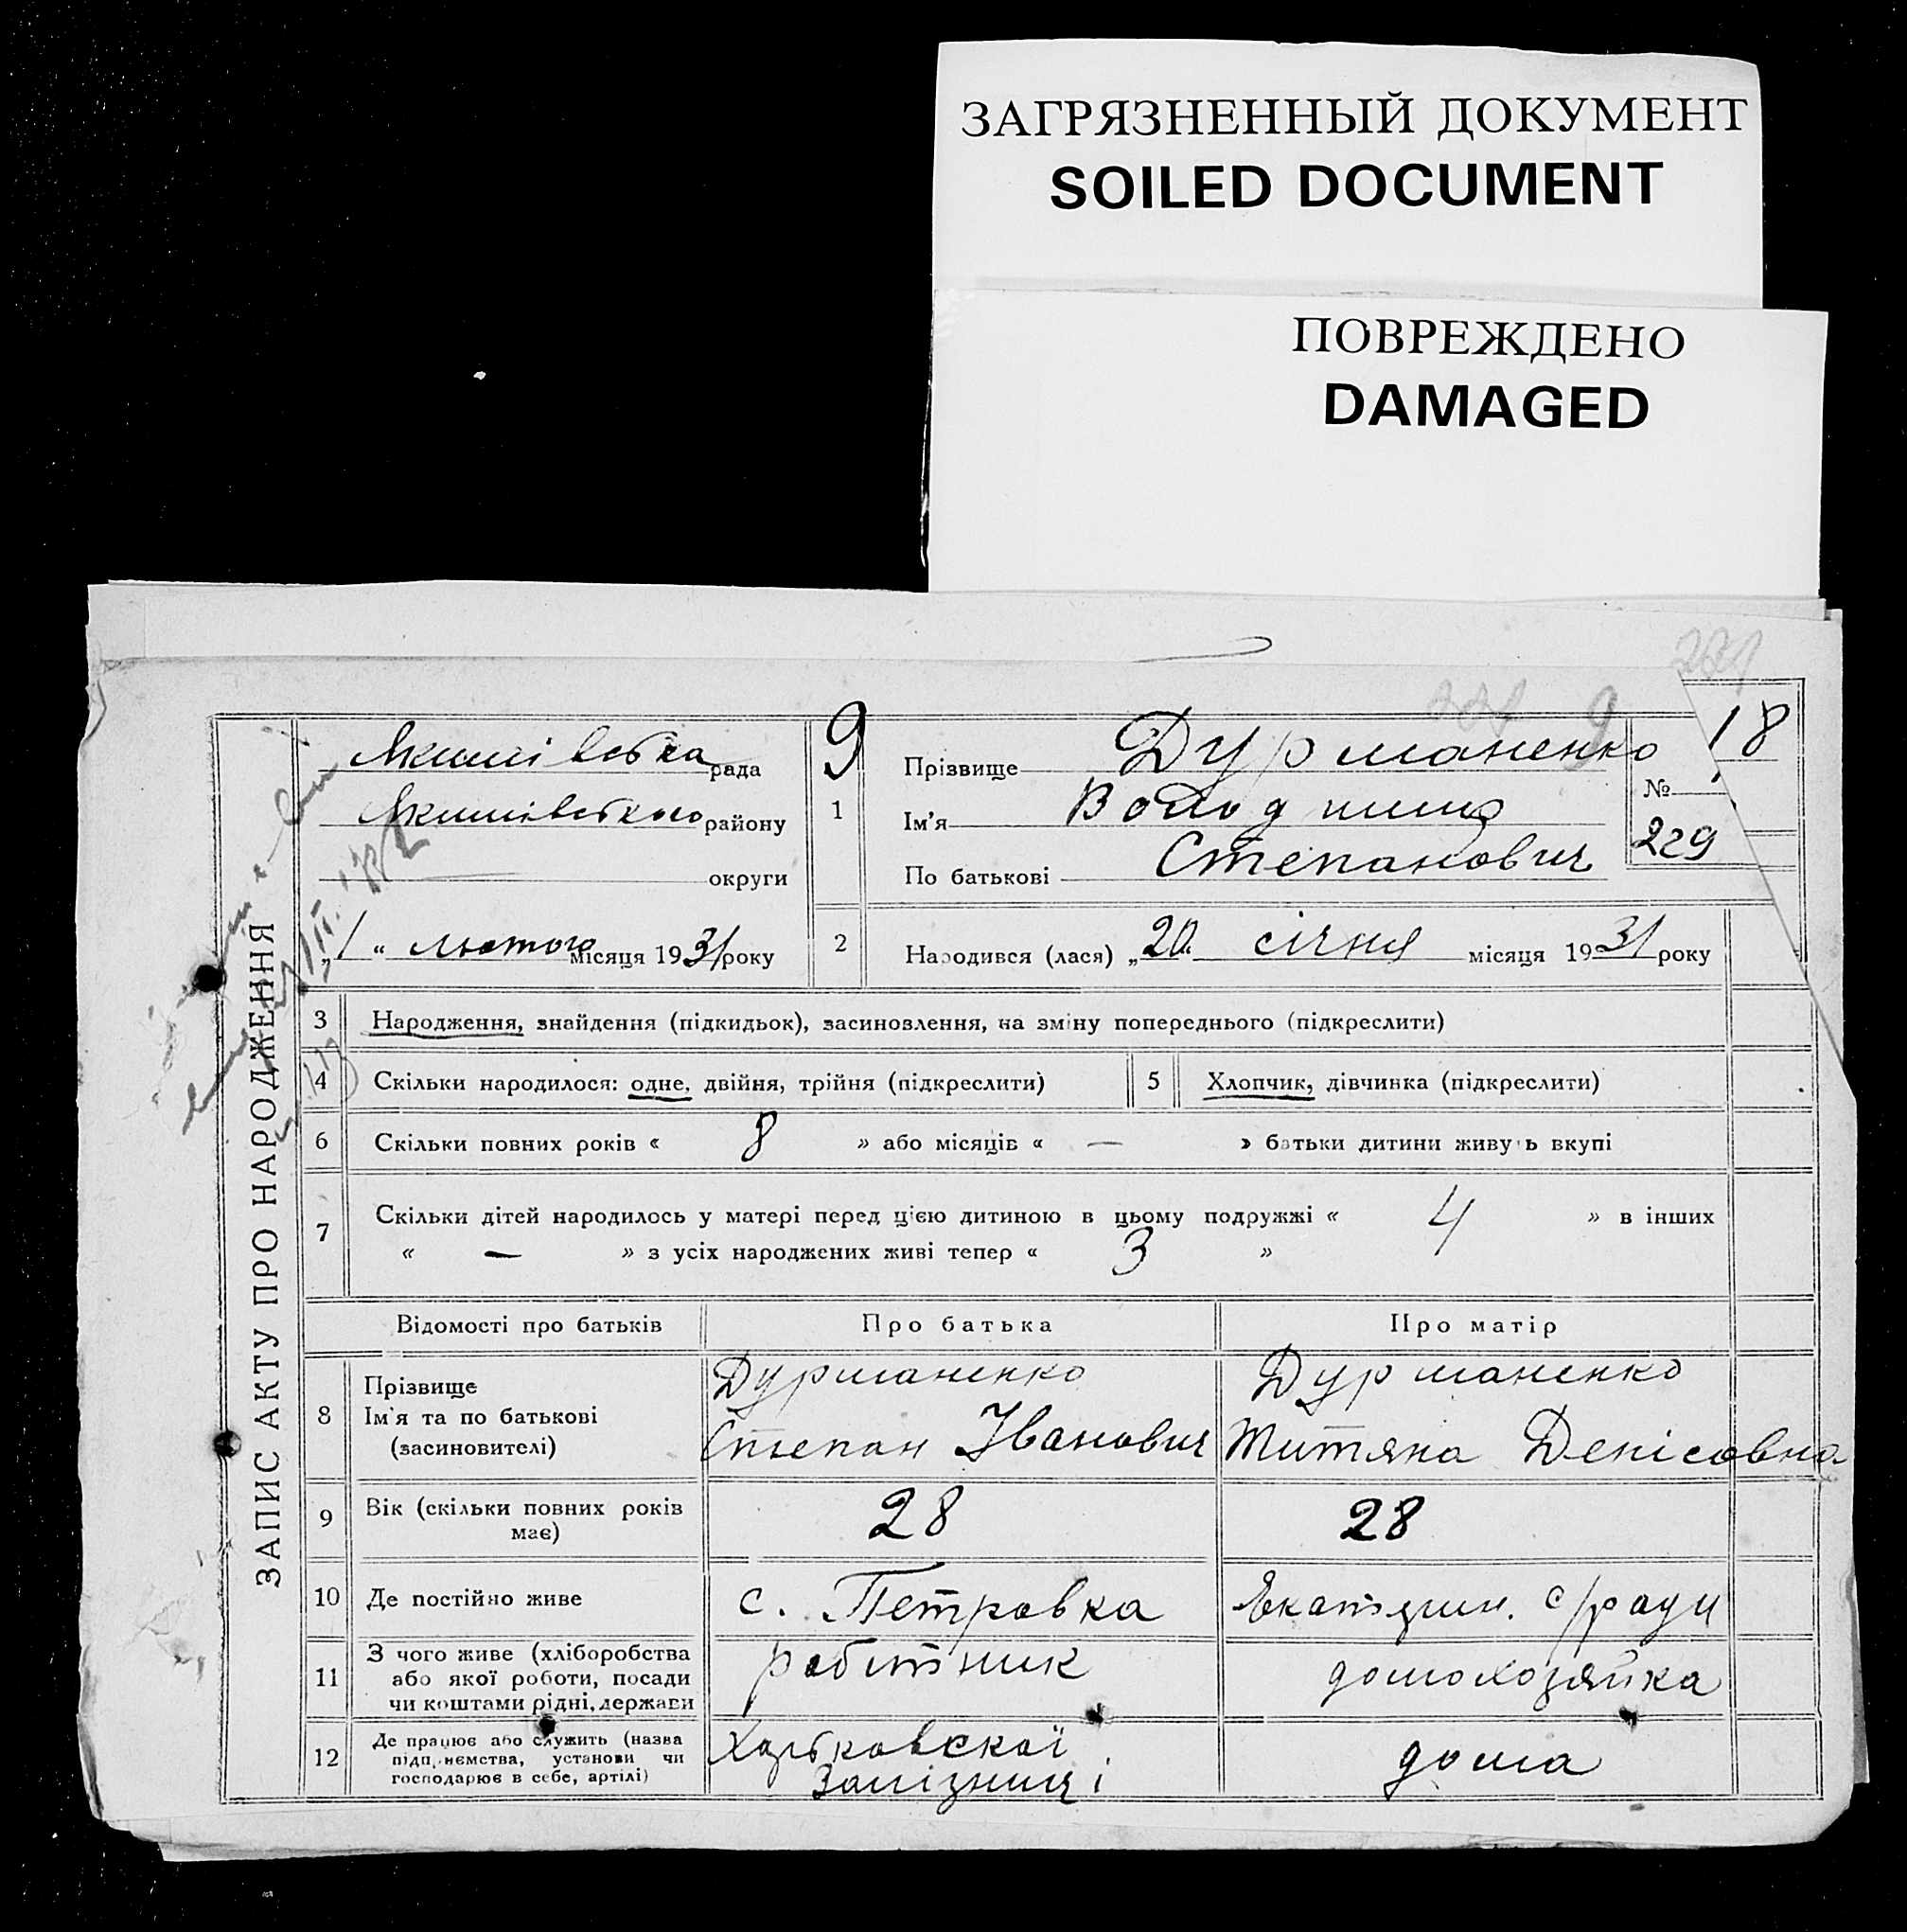 ЗАГРЯЗНЕННЫЙ ДОКУМЕНТ
SOILED DOCUMENT
ПОВРЕЖДЕНО
DAMAGED
ЗАПИС АКТУ ПРО НАРОДЖЕННЯ
Якимівська рада
Якимівського району
округи
„1“ лютого місяця 1931 року
9
1
Прізвище Дурманенко
Ім'я Володимир
По батькові Степанович
18
№
229
2 Народився (лася) „20“ січня місяця 1931 року
3 Народження, знайдення (підкидьок), засиновлення, на зміну попереднього (підкреслити)
4 Скільки народилося: одне, двійня, трійня (підкреслити) 5 Хлопчик, дівчинка (підкреслити)
6 Скільки повних років « 8 » або місяців « — » батьки дитини живуть вкупі
7 Скільки дітей народилось у матері перед цією дитиною в цьому подружжі « 4 » в інших
« — » з усіх народжених живі тепер « 3 »
Відомості про батьків Про батька Про матір
8 Прізвище Ім'я та по батькові (засиновителі)
Дурманенко Степан Іванович
Дурманенко Титяна Денісовна
9 Вік (скільки повних років має) 28 28
10 Де постійно живе с. Петровка Екатерин. с/ради
11 З чого живе (хліборобства або якої роботи, посади чи коштами рідні, держави
робітник домохозяйка
12 Де працює або служить (назва підприємства, установи чи господарює в себе, артілі)
Харьковскої Залізниці дома